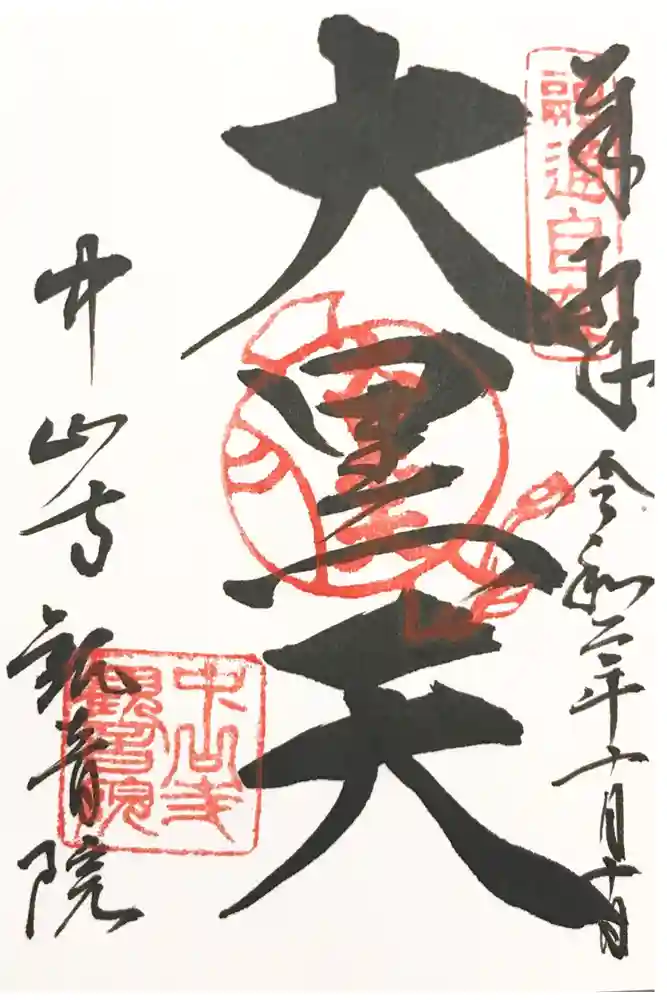 奉拝 令和二年十月十日
融通自在
大黒天
中山寺 観音院
中山寺
觀音院